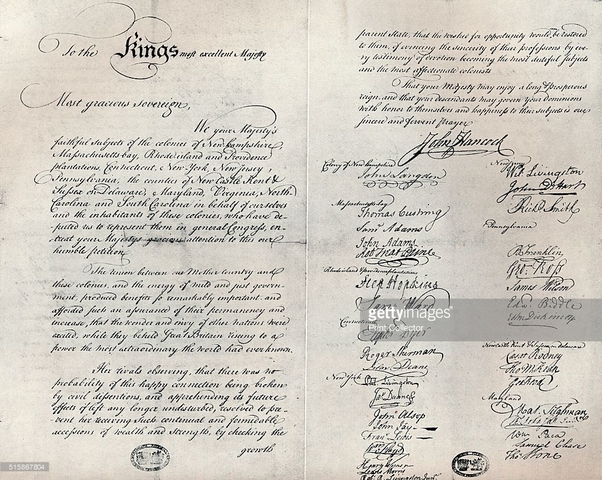 To the Kings most excellent Majesty
Most gracious Sovereign,
We your Majesty's
faithful subjects of the colonies of New hampshire,
Massachusetts bay, Rhode island and Providence
plantations, Connecticut, New York, New Jersey,
Pennsylvania, the counties of New Castle Kent &
Sussex on Delaware, Maryland, Virginia, North
Carolina and South Carolina in behalf of ourselves
and the inhabitants of these colonies, who have de-
puted us to represent them in general Congress, en-
treat your Majestys gracious attention to this our
humble petition.
The union between our Mother Country and
these colonies, and the energy of mild and just govern-
ment, produced benefits so remarkably important and
afforded such an assurance of their permanency and
increase, that the wonder and envy of other nations were
excited, while they beheld Great Britain rising to a
power the most extraordinary the world had ever known.
Her rivals observing, that there was no
probability of this happy connection being broken
by civil dissentions, and apprehending its future
effects if left any longer undisturbed, resolved to pre-
vent her receiving such continual and formidable
accessions of wealth and strength, by checking the
growth
parent State, that the wished for opportunity would be restored
to them, of evincing the sincerity of their professions by eve-
ry testimony of devotion becoming the most dutiful subjects
and the most affectionate colonists.
That your Majesty may enjoy a long & prosperous
reign, and that your descendants may govern your dominions
with honor to themselves and happiness to their subjects is our
sincere and fervent prayer.
John Hancock
Colony of New hampshire
John Langdon
Massachusetts bay
Thomas Cushing
Saml Adams
John Adams
Robt Treat Paine
Rhode island & Providence plantations
Step Hopkins
Sam: Ward
Connecticut
Elipht Dyer
Roger Sherman
Silas Deane
New York
Phil Livingston
Jas Duane
John Alsop
John Jay
Frans Lewis
Wm Floyd
Henry Wisner
Lewis Morris
Rob. R. Livingston Junr.
New Jersey
Wil Livingston
John D Hart
Richd Smith
Pennsylvania
B Franklin
Geo: Ross
James Wilson
Edwd Biddle
New Castle Kent & Sussex on Delaware
Caesar Rodney
Tho M:Kean
Geo Read
Maryland
Mat. Tilghman
Wm Paca
Samuel Chase
Thos Stone
gettyimages
Print Collector
515867804